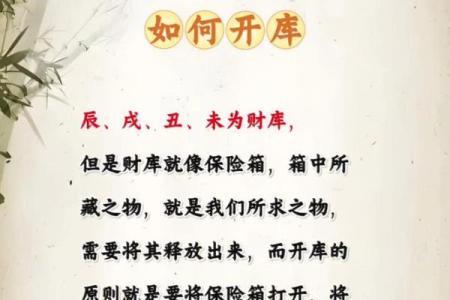 如何开库
辰、戌、丑、未为财库，
但是财库就像保险箱，箱中所
藏之物，就是我们所求之物，
需要将其释放出来，而开库的
原则就是要将保险箱打开、将